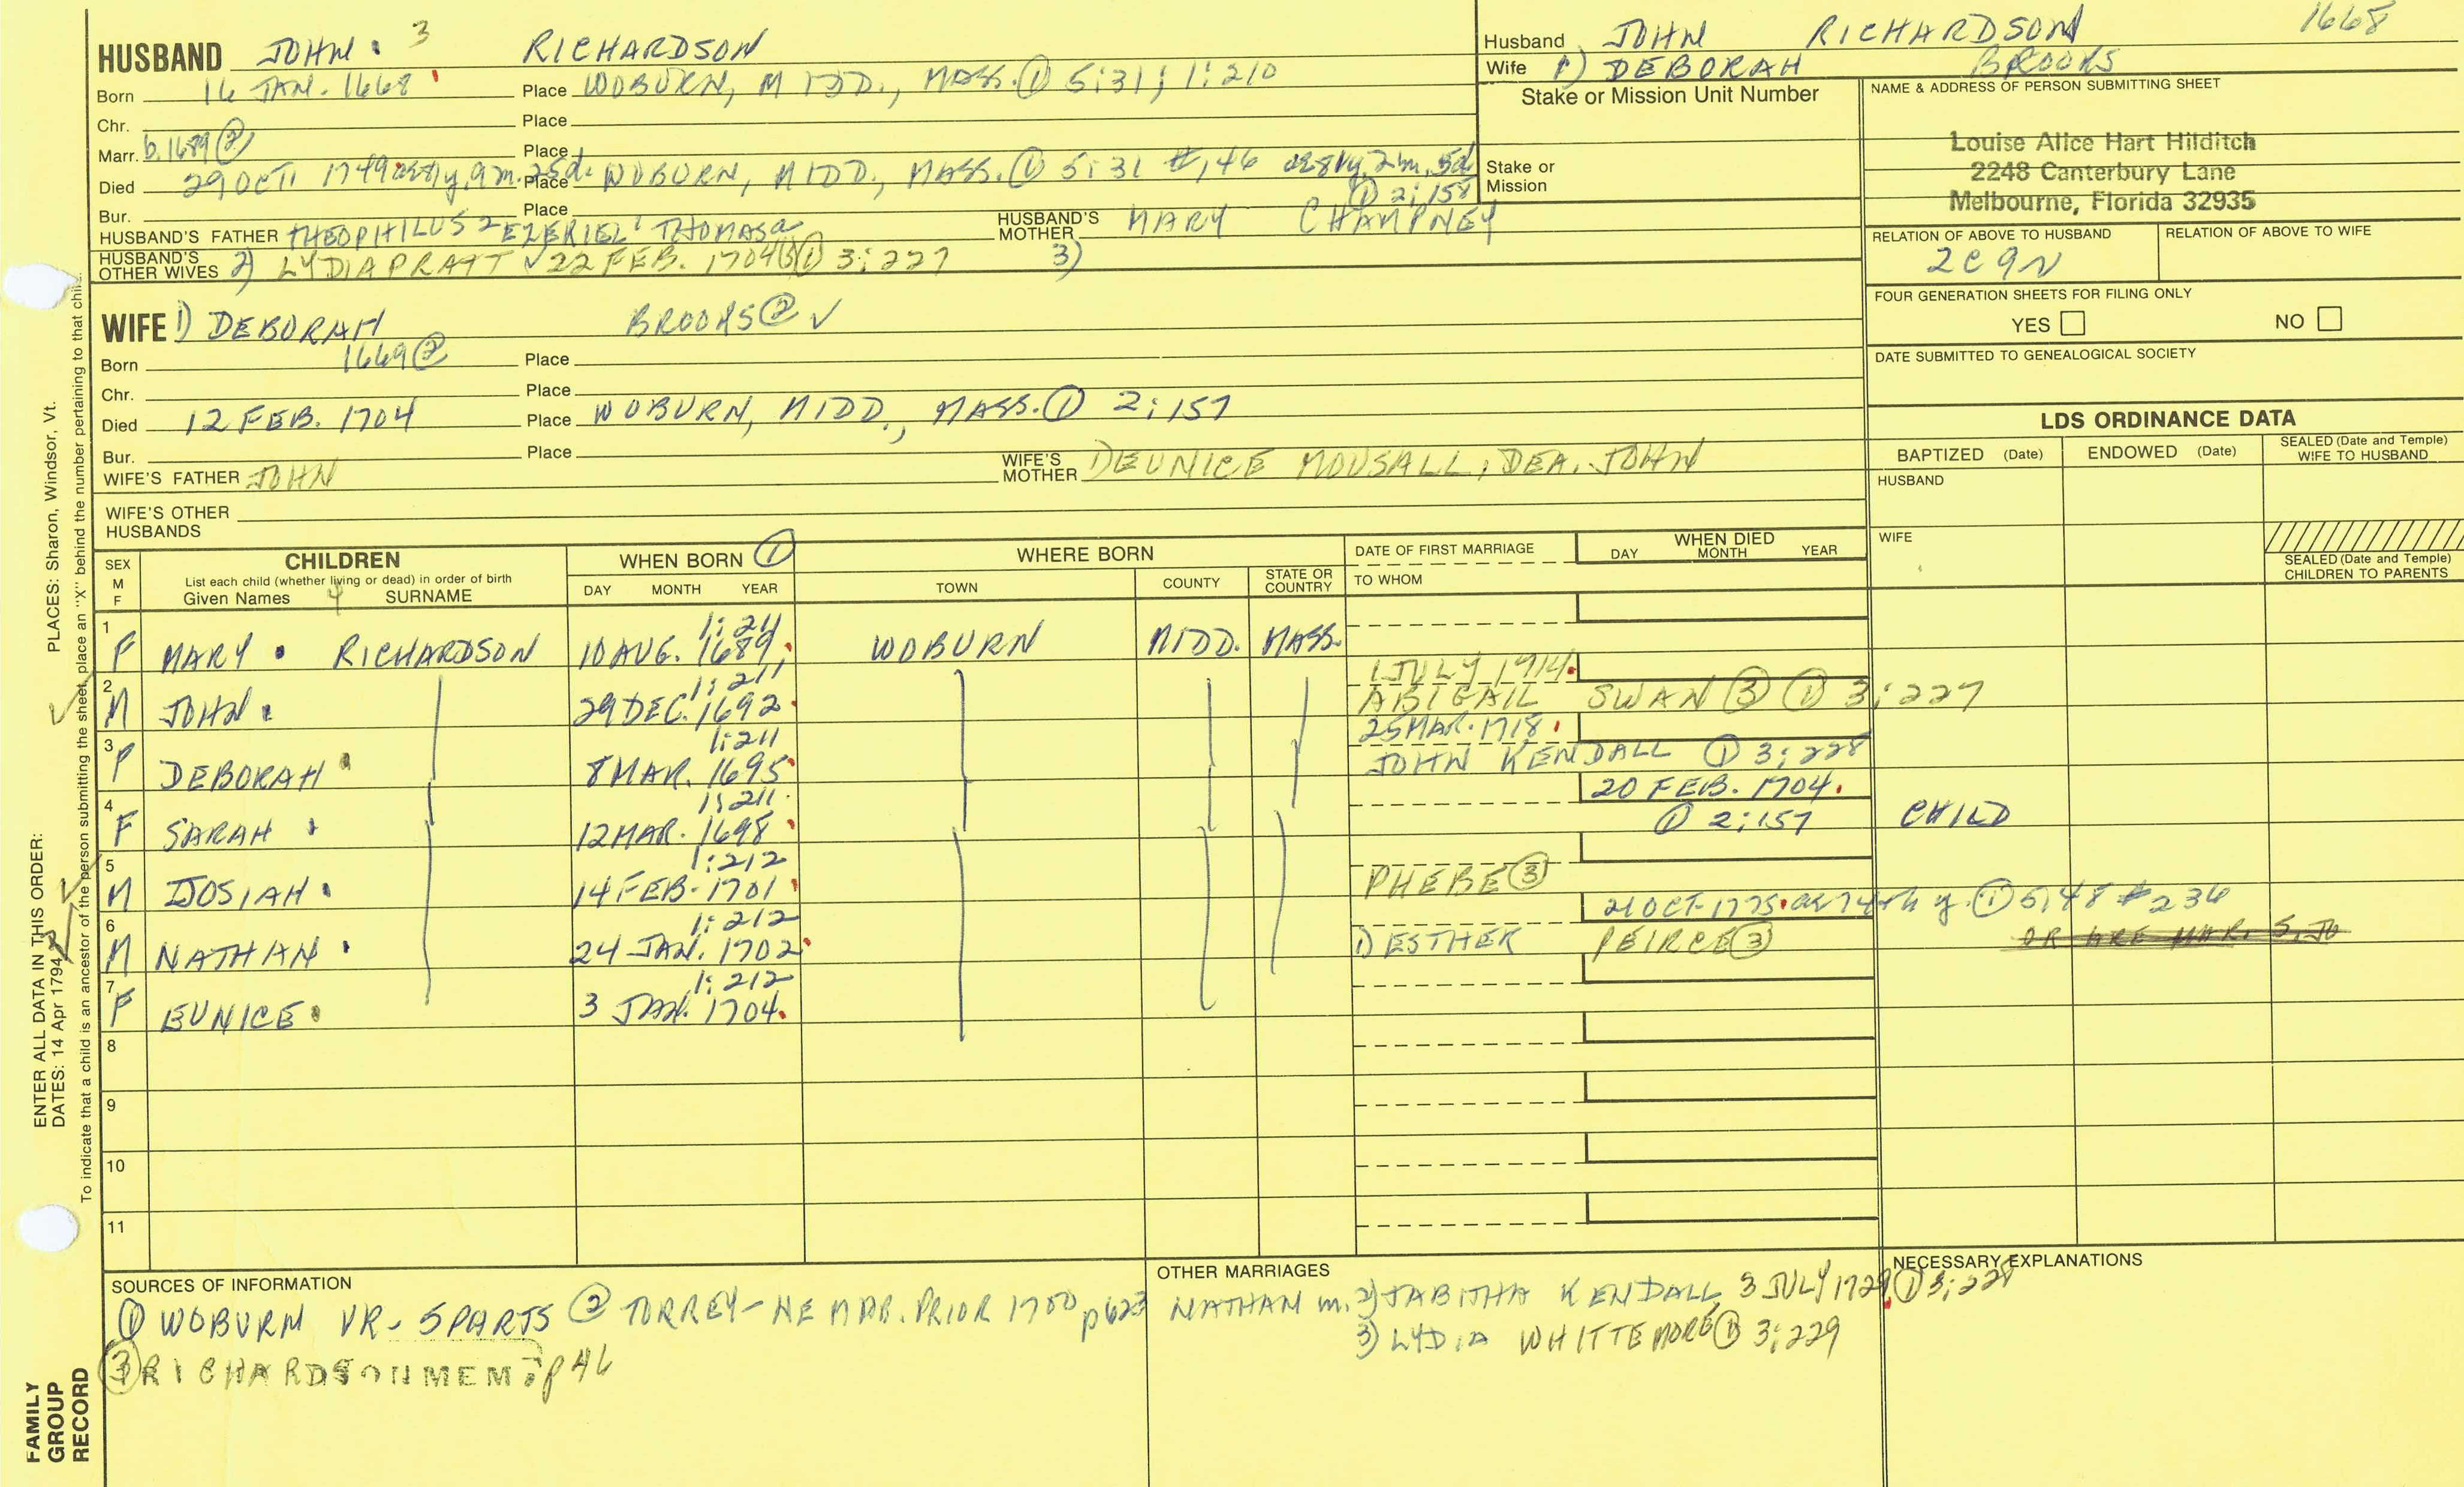 HUSBAND JOHN. 3 RICHARDSON
Born 16 JAN. 1668 Place WOBURN, MIDD., MASS. ① 5:31; 1:210
Chr. Place
Marr. b. 1689 ② Place
Died 29 OCT. 1749 Place WOBURN, MIDD., MASS. ① 5:31 #,46 ae 81y, 2m, 5d
① 2:158
Bur. Place
HUSBAND'S FATHER THEOPHILUS 2 EZEKIEL 1 THOMAS a HUSBAND'S MOTHER MARY CHAMPNEY
HUSBAND'S OTHER WIVES 2) LYDIA PRATT √ 22 FEB. 1704/5 ① 3:227 3)
Husband JOHN RICHARDSON 1668
Wife 1) DEBORAH BROOKS
Stake or Mission Unit Number
Stake or Mission
NAME & ADDRESS OF PERSON SUBMITTING SHEET
Louise Alice Hart Hilditch
2248 Canterbury Lane
Melbourne, Florida 32935
RELATION OF ABOVE TO HUSBAND RELATION OF ABOVE TO WIFE
2C9R
FOUR GENERATION SHEETS FOR FILING ONLY
YES NO
DATE SUBMITTED TO GENEALOGICAL SOCIETY
WIFE 1) DEBORAH BROOKS ② √
Born 1669 ② Place
Chr. Place
Died 12 FEB. 1704 Place WOBURN, MIDD., MASS. ① 2:157
Bur. Place
WIFE'S FATHER JOHN WIFE'S MOTHER 1) EUNICE MOUSALL, DEA. JOHN
WIFE'S OTHER HUSBANDS
LDS ORDINANCE DATA
BAPTIZED (Date) ENDOWED (Date) SEALED (Date and Temple) WIFE TO HUSBAND
HUSBAND
WIFE
SEALED (Date and Temple) CHILDREN TO PARENTS
SEX M F CHILDREN WHEN BORN ① WHERE BORN DATE OF FIRST MARRIAGE WHEN DIED
List each child (whether living or dead) in order of birth
Given Names 4 SURNAME DAY MONTH YEAR TOWN COUNTY STATE OR COUNTRY TO WHOM DAY MONTH YEAR
1:211
1 F MARY . RICHARDSON 10 AUG. 1689 WOBURN MIDD. MASS.
1:211 1 JULY 1914.
2 M JOHN . 29 DEC. 1692 ABIGAIL SWAN ③ ① 3:227
1:211 25 MAR. 1718.
3 F DEBORAH 8 MAR. 1695 JOHN KENDALL ① 3:228
1:211 20 FEB. 1704.
4 F SARAH 12 MAR. 1698 ① 2:157 CHILD
1:212
5 M JOSIAH . 14 FEB. 1701 PHEBE ③
1:212 21 OCT. 1775. ae 74th y. ① 5,48 #236
6 M NATHAN . 24 JAN. 1702 1) ESTHER PEIRCE ③
1:212
7 F EUNICE . 3 JAN. 1704.
8
9
10
11
SOURCES OF INFORMATION
① WOBURN VR - 5 PARTS ② TORREY - NE MAR. PRIOR 1700 p623
③ RICHARDSON MEM. p46
OTHER MARRIAGES
NATHAN m. 2) TABITHA KENDALL, 3 JULY 1729 ① 3:228
3) LYDIA WHITTEMORE ① 3:229
NECESSARY EXPLANATIONS
ENTER ALL DATA IN THIS ORDER:
DATES: 14 Apr 1794 PLACES: Sharon, Windsor, Vt.
To indicate that a child is an ancestor of the person submitting the sheet, place an "X" behind the number pertaining to that child.
FAMILY
GROUP
RECORD